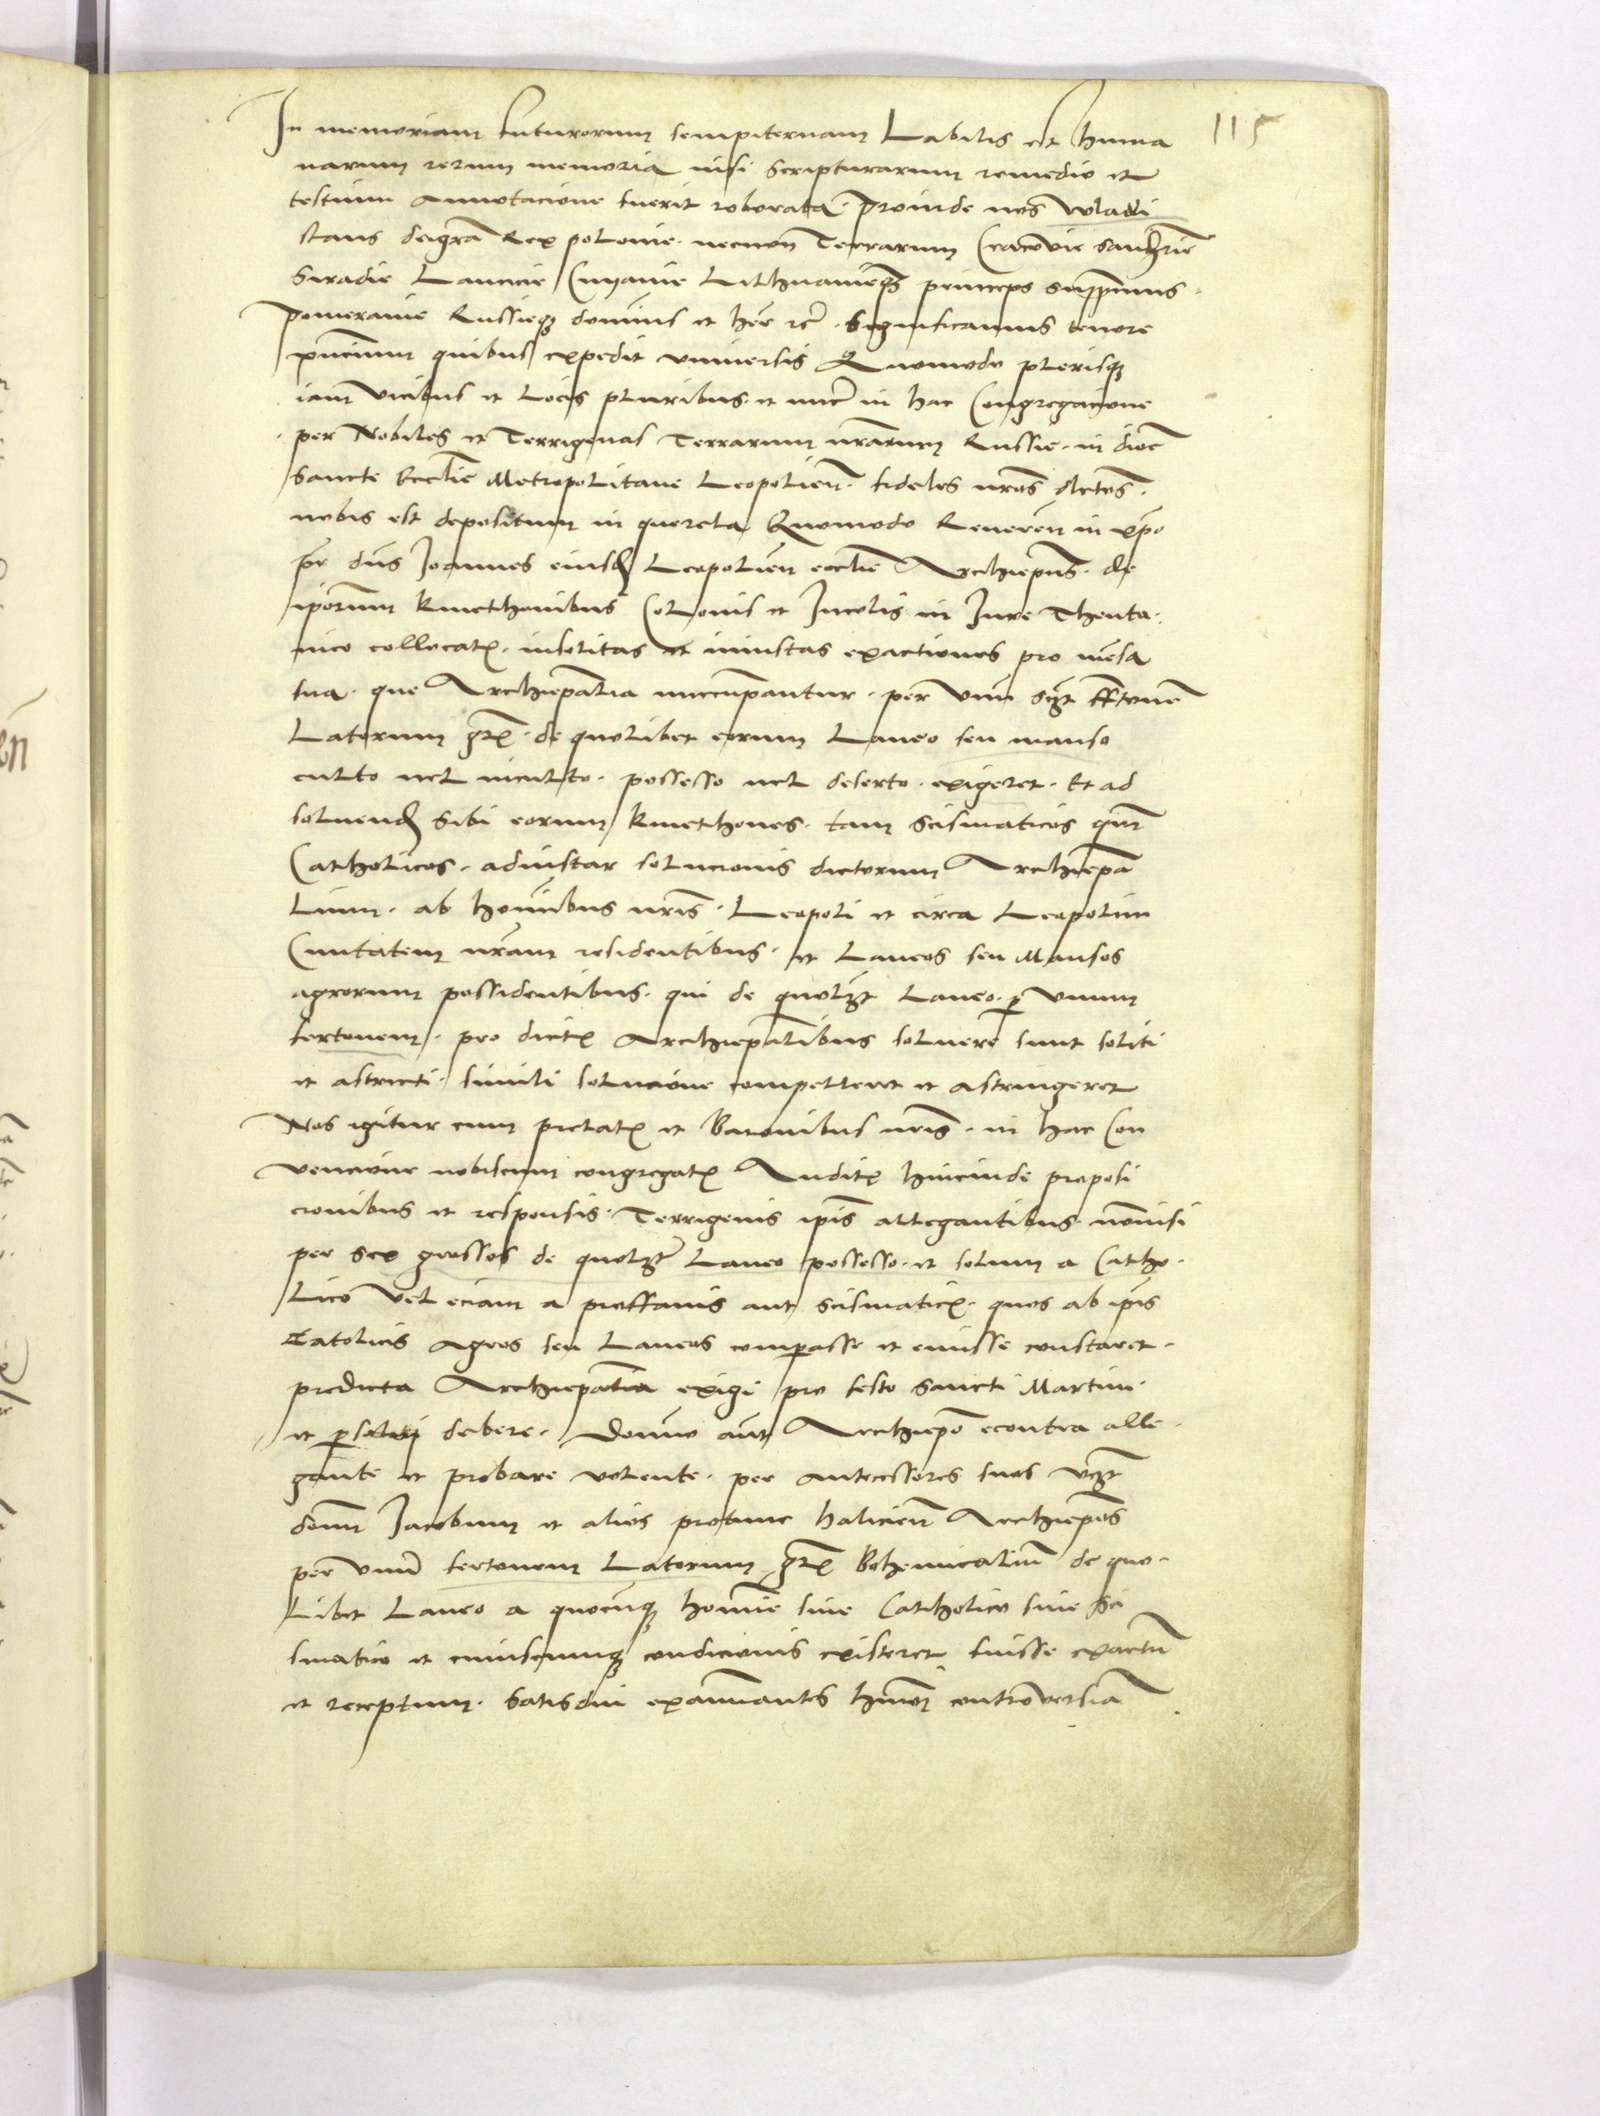 115
In memoriam futurorum sempiternam Labilis est huma
narum rerum memoria nisi scripturarum remedio et
testium Annotacione fuerit roborata. Proinde nos Wladi
slaus dei gra Rex polonie. necnon Terrarum Cracovie sandomirie
Siradie Lancicie Cuyavie Lithuanieq princeps suppremus.
Pomeranie Russieq dominus et heres etc. Significamus tenore
pncium quibus expedit universis Quomodo plerisq
iam vicibus et Locis pluribus. et nunc in hac Congregacione
per Nobiles et Terrigenas Terrarum nrarum Russie. in dioc
sancte Ecclie Metropolitane Leopolien. fideles nros dlctos.
nobis est depositum in querela Quomodo Reveren in xpo
pr dns Joannes eiusd Leopolien ecclie Archiepus. de
ipsorum kmethonibus Colonis et Incolis in Iure Theuta.
nico collocatis. insolitas et iniustas exactiones pro mensa
sua. que Archiepalia nuccupantur. per unum fertonem
Latorum gros. de quolibet eorum Laneo seu manso
culto vel inculto. possesso vel deserto. exigeret. Et ad
solvend sibi eorum kmethones. tam scismaticos quam
Catholicos. adinstar solucionis dictorum Archiepa
Lium. ab hoinibus nris. Leopoli et circa Leopolim
Civitatem nram residentibus. et Laneos seu Mansos
agrorum possidentibus. qui de quolibet Laneo. p unum
fertonem. pro dictis Archiepalibus solvere sunt soliti
et astricti. simili solucione compelleret et astringeret
Nos igitur cum prelatis et Baronibus nris. in hac Con
vencione nobiscum congregatis Auditis hincinde proposi
cionibus et responsis. Terrigenis ipis allegantibus. nonnisi
per sex grossos de quolibet Laneo possesso. et solum a Catho.
Lico Vel eciam a proffanis aut scismaticis. quos ab ipis
Catolicis Agros seu Laneos comparasse et emisse constaret.
predicta Archiepalia exigi pro festo sancti Martini.
et psolvi debere. Domno aut Archiepo econtra alle.
gante et probare volente. per antecessores suos
domnum Jacobum et alios protunc halicien Archiepos
per unum fertonem Latorum gros Bohemicalium de quo.
Libet Laneo a quocunq homine sive Catholico sive sci
smatico et cuiuscunq condicionis existeret fuisse exactum
et receptum. Satis diu examinantes hmoi controversiam